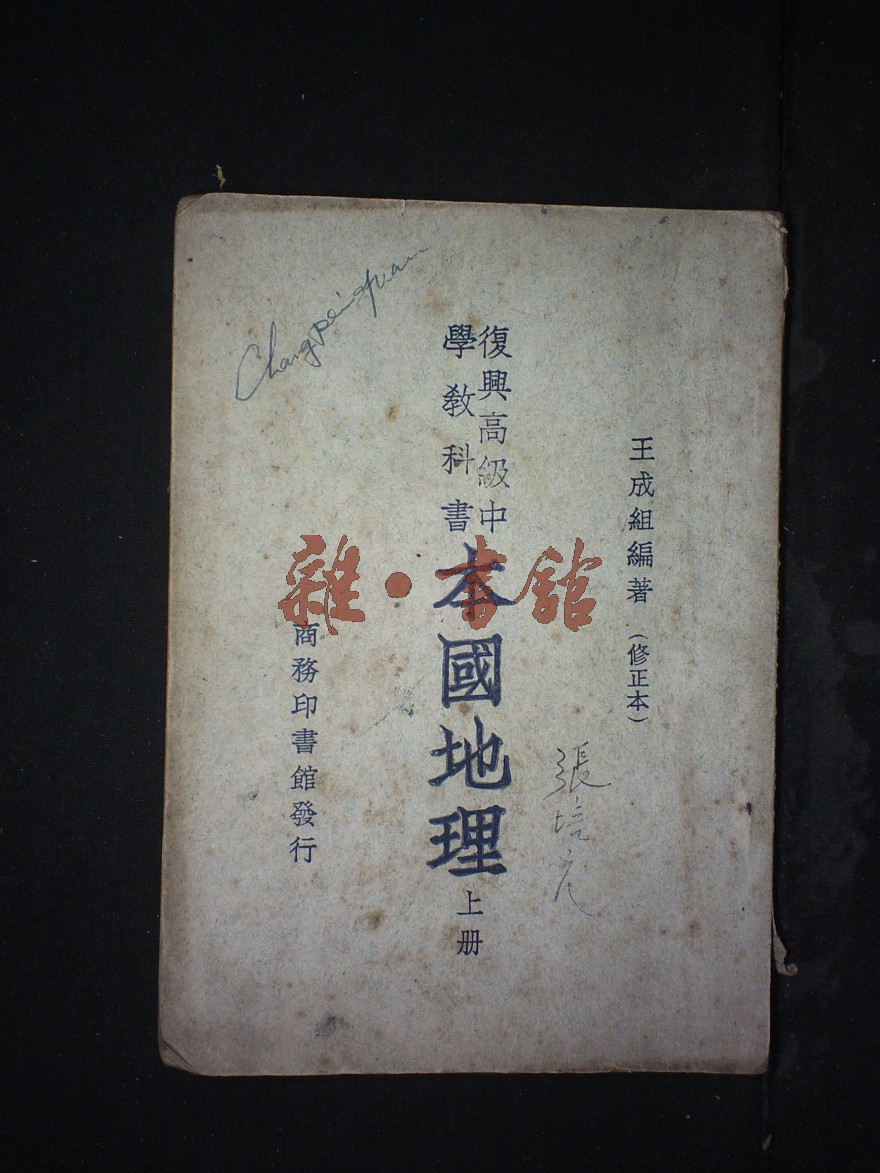 王成組編著（修正本）
復興高級中
學教科書
本國地理
上册
商務印書館發行
張培元
雜·書館